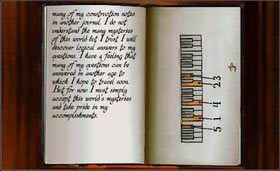 many of my construction notes
in another journal. I do not
understand the many mysteries
of this world but I trust I will
discover logical answers to my
questions. I have a feeling that
many of my questions can be
answered in another age to
which I hope to travel soon.
But for now I must simply
accept this world's mysteries
and take pride in my
accomplishments.
5 1 4 23